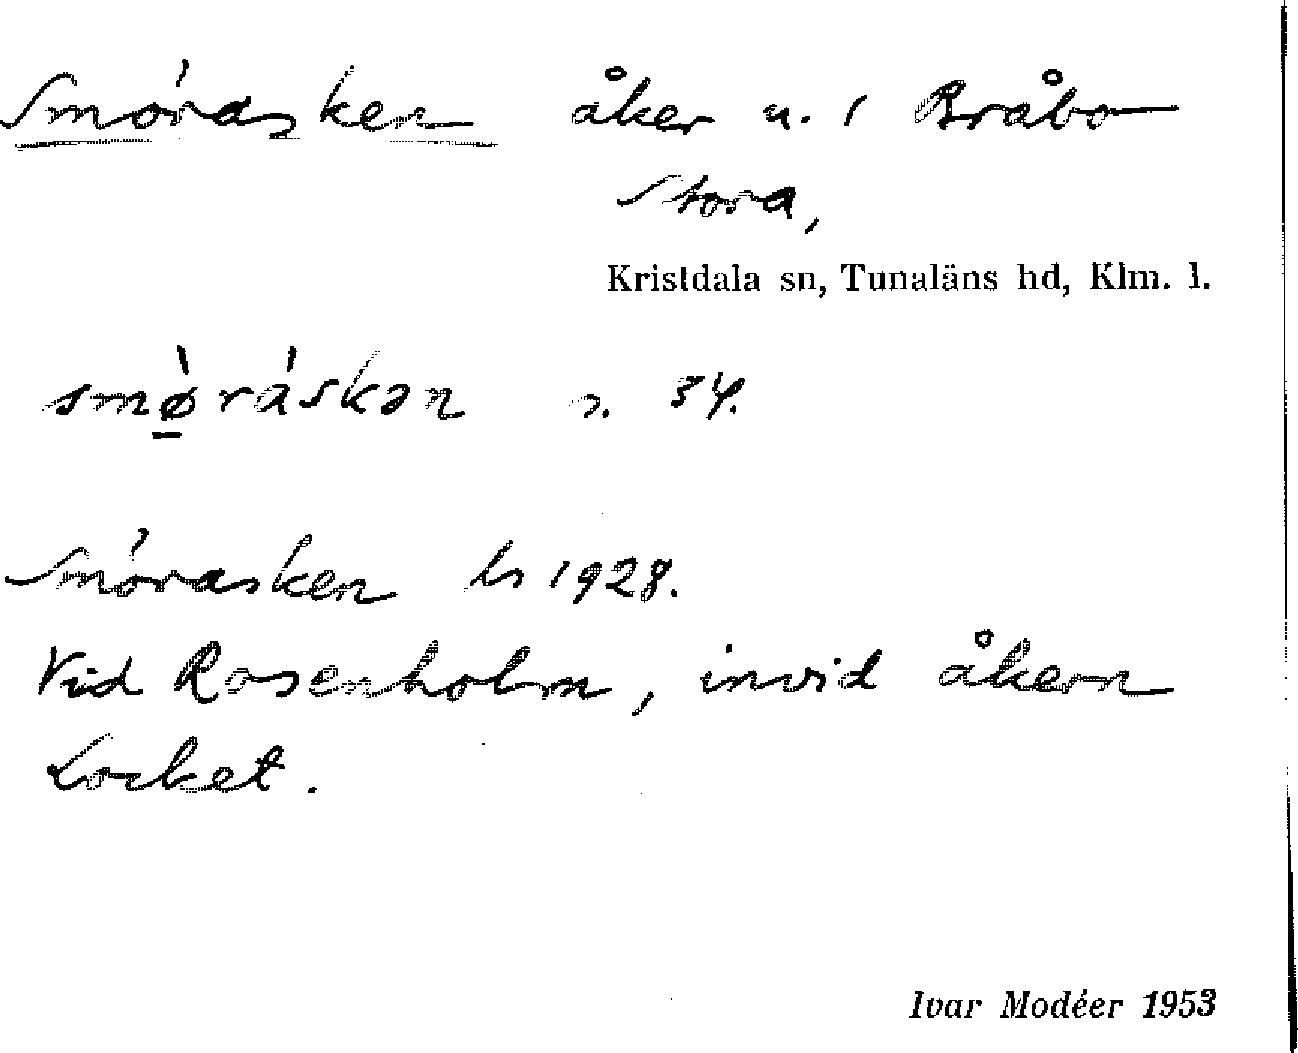 Smörasken åker u. 1 Bråbo
Stora,
Kristdala sn, Tunaläns hd, Klm. l.
smø̀ràskən s. 34.
Smörasken ls 1928.
Vid Rosenholm, invid åkern
Locket.
Ivar Modéer 1953